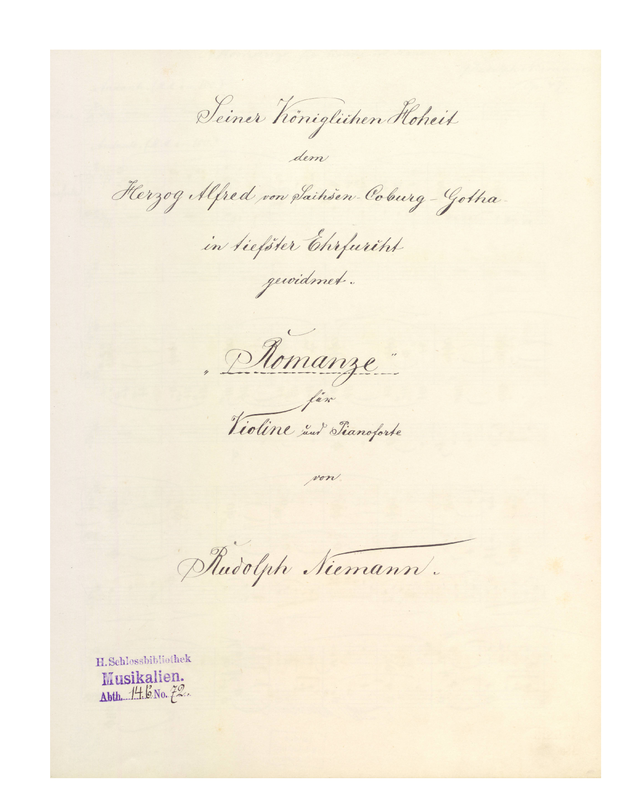 Seiner Königlichen Hoheit
dem
Herzog Alfred von Sachsen-Coburg-Gotha
in tiefster Ehrfurcht
gewidmet.
„Romanze“
für
Violine und Pianoforte
von
Rudolph Niemann.
H. Schlossbibliothek
Musikalien.
Abth. 14.b. No. 72.